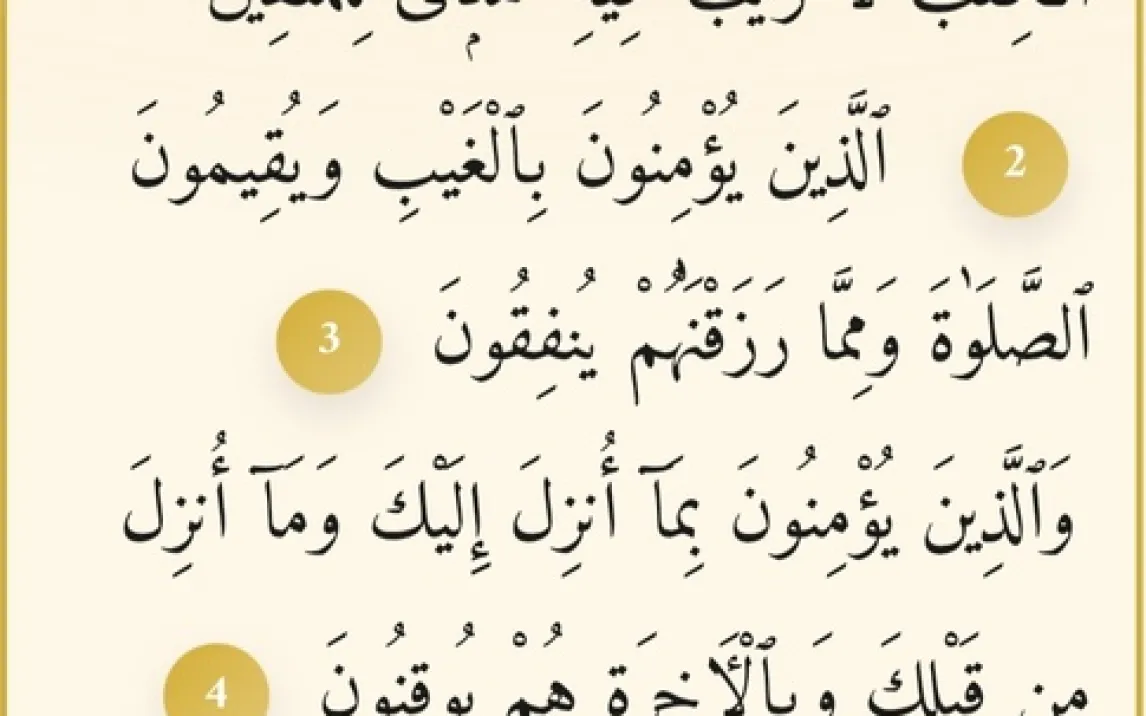 ٱلْكِتَٰبُ لَا رَيْبَ فِيهِ هُدًى لِّلْمُتَّقِينَ
2 ٱلَّذِينَ يُؤْمِنُونَ بِٱلْغَيْبِ وَيُقِيمُونَ
ٱلصَّلَوٰةَ وَمِمَّا رَزَقْنَٰهُمْ يُنفِقُونَ 3
وَٱلَّذِينَ يُؤْمِنُونَ بِمَآ أُنزِلَ إِلَيْكَ وَمَآ أُنزِلَ
مِن قَبْلِكَ وَبِٱلْـَٔاخِرَةِ هُمْ يُوقِنُونَ 4